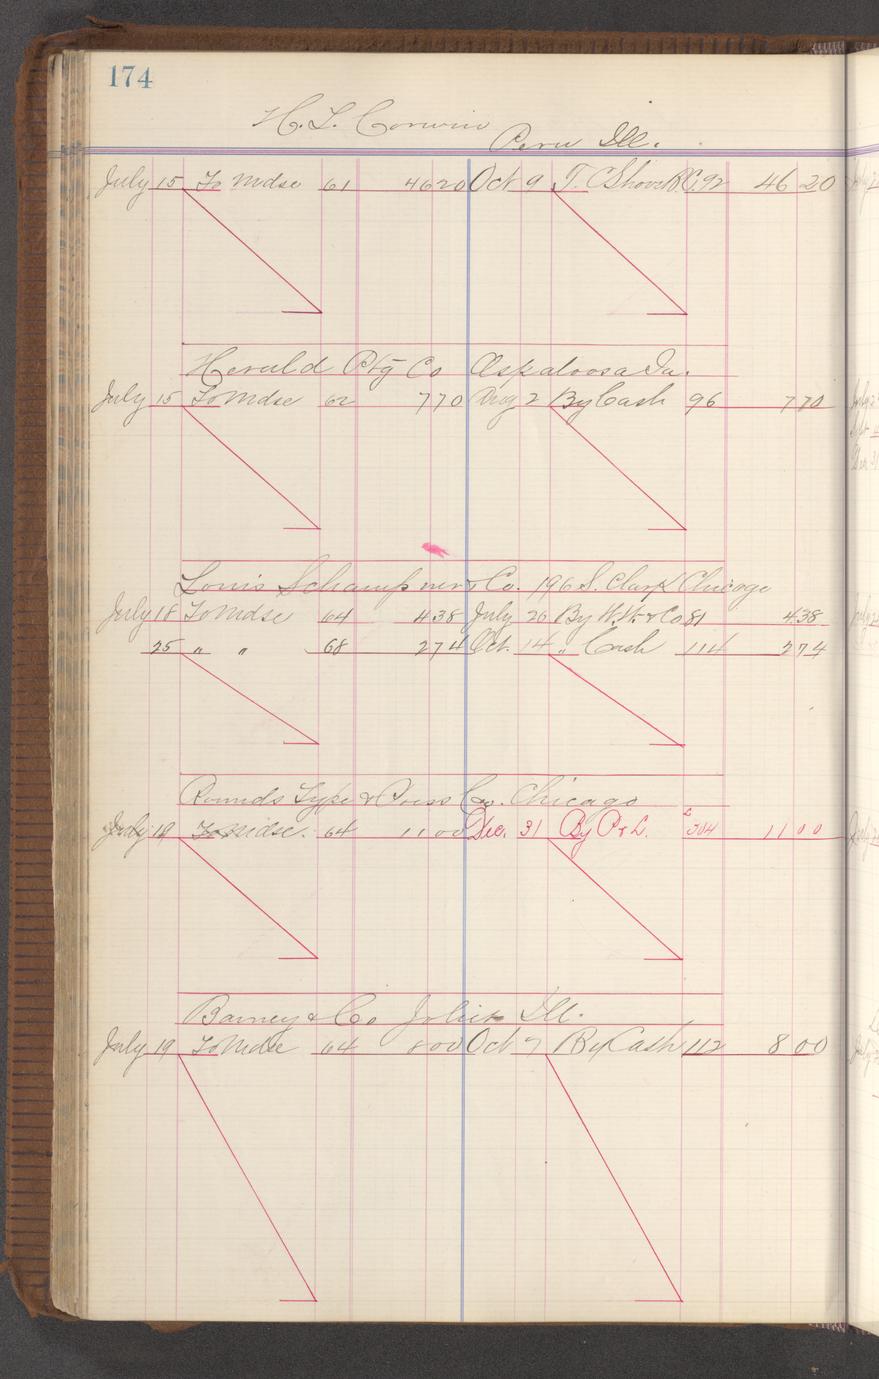 174
H. L. Corwin
Peru Ill.
July 15 To Mdse 61 46 20 Oct 9 T. C. Shove 92 46 20
Herald Ptg Co Oskaloosa Ia.
July 15 To Mdse 62 7 70 Aug 2 By Cash 96 7 70
Louis & Co. 196 S. Clark Chicago
July 18 To Mdse 64 4 38 July 26 By & Co 81 4 38
25 " " 68 2 74 Oct. 14 " Cash 114 2 74
Rounds Type & Press Co. Chicago
July 19 To Mdse. 64 11 00 Dec. 31 By P & L. 304 11 00
Barney & Co Joliet Ill.
July 19 To Mdse 64 8 00 Oct 7 By Cash 112 8 00